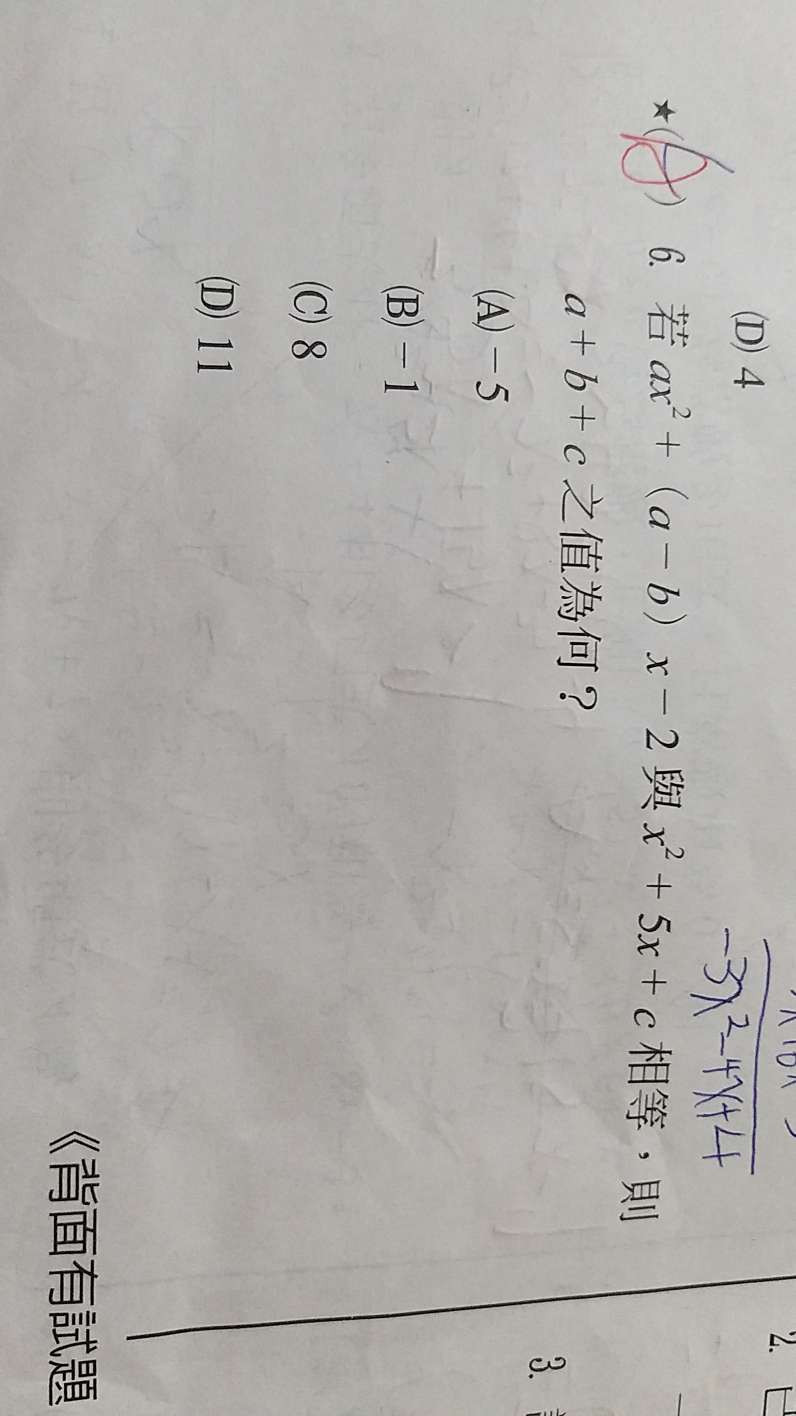 (D) 4
-3x²-4x+4
★( ) 6. 若 ax² + (a - b) x - 2 與 x² + 5x + c 相等，則
a + b + c 之值為何？
(A) -5
(B) -1
(C) 8
(D) 11
《背面有試題
2.
3.